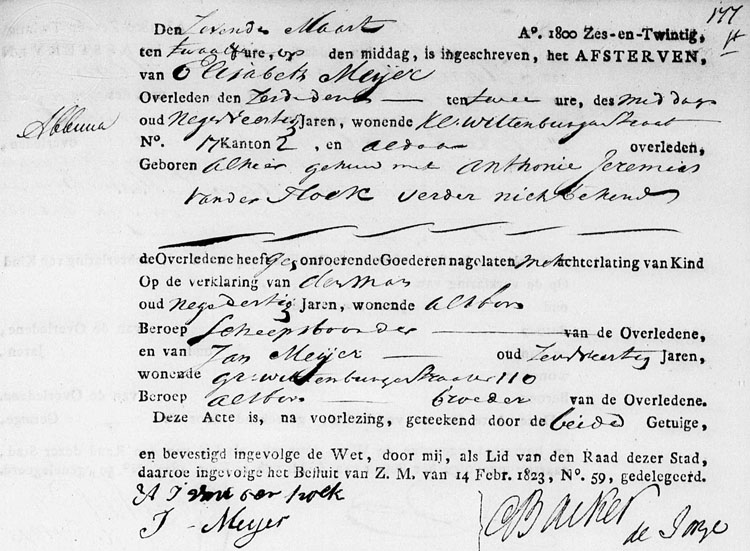 177
Den Zevende Maart A°. 1800 Zes-en-Twintig,
ten twaalf ure, op den middag, is ingeschreven, het AFSTERVEN,
van Elisabeth Meijer
Overleden den Zesden ten twee ure, des middags
oud Negen Veertig Jaren, wonende Kl. Wittenburger Straat
N°. 7 Kanton 2, en aldaar overleden,
Geboren alhier gehuwd met Anthonie Jeremias
van der Hoek verder niet bekend
de Overledene heeft geen onroerende Goederen nagelaten, met achterlating van Kind
Op de verklaring van derman
oud negendertig Jaren, wonende alsboven
Beroep Scheepsboorder van de Overledene,
en van Jan Meijer oud Jaren,
wonende gr. wittenburger Straat 110
Beroep alsboven broeder van de Overledene.
Deze Acte is, na voorlezing, geteekend door de beide Getuige,
en bevestigd ingevolge de Wet, door mij, als Lid van den Raad dezer Stad,
daartoe ingevolge het Besluit van Z. M. van 14 Febr. 1823, N°. 59, gedelegeerd.
A J van der hoek
J - Meyer
Backer
de Jonge